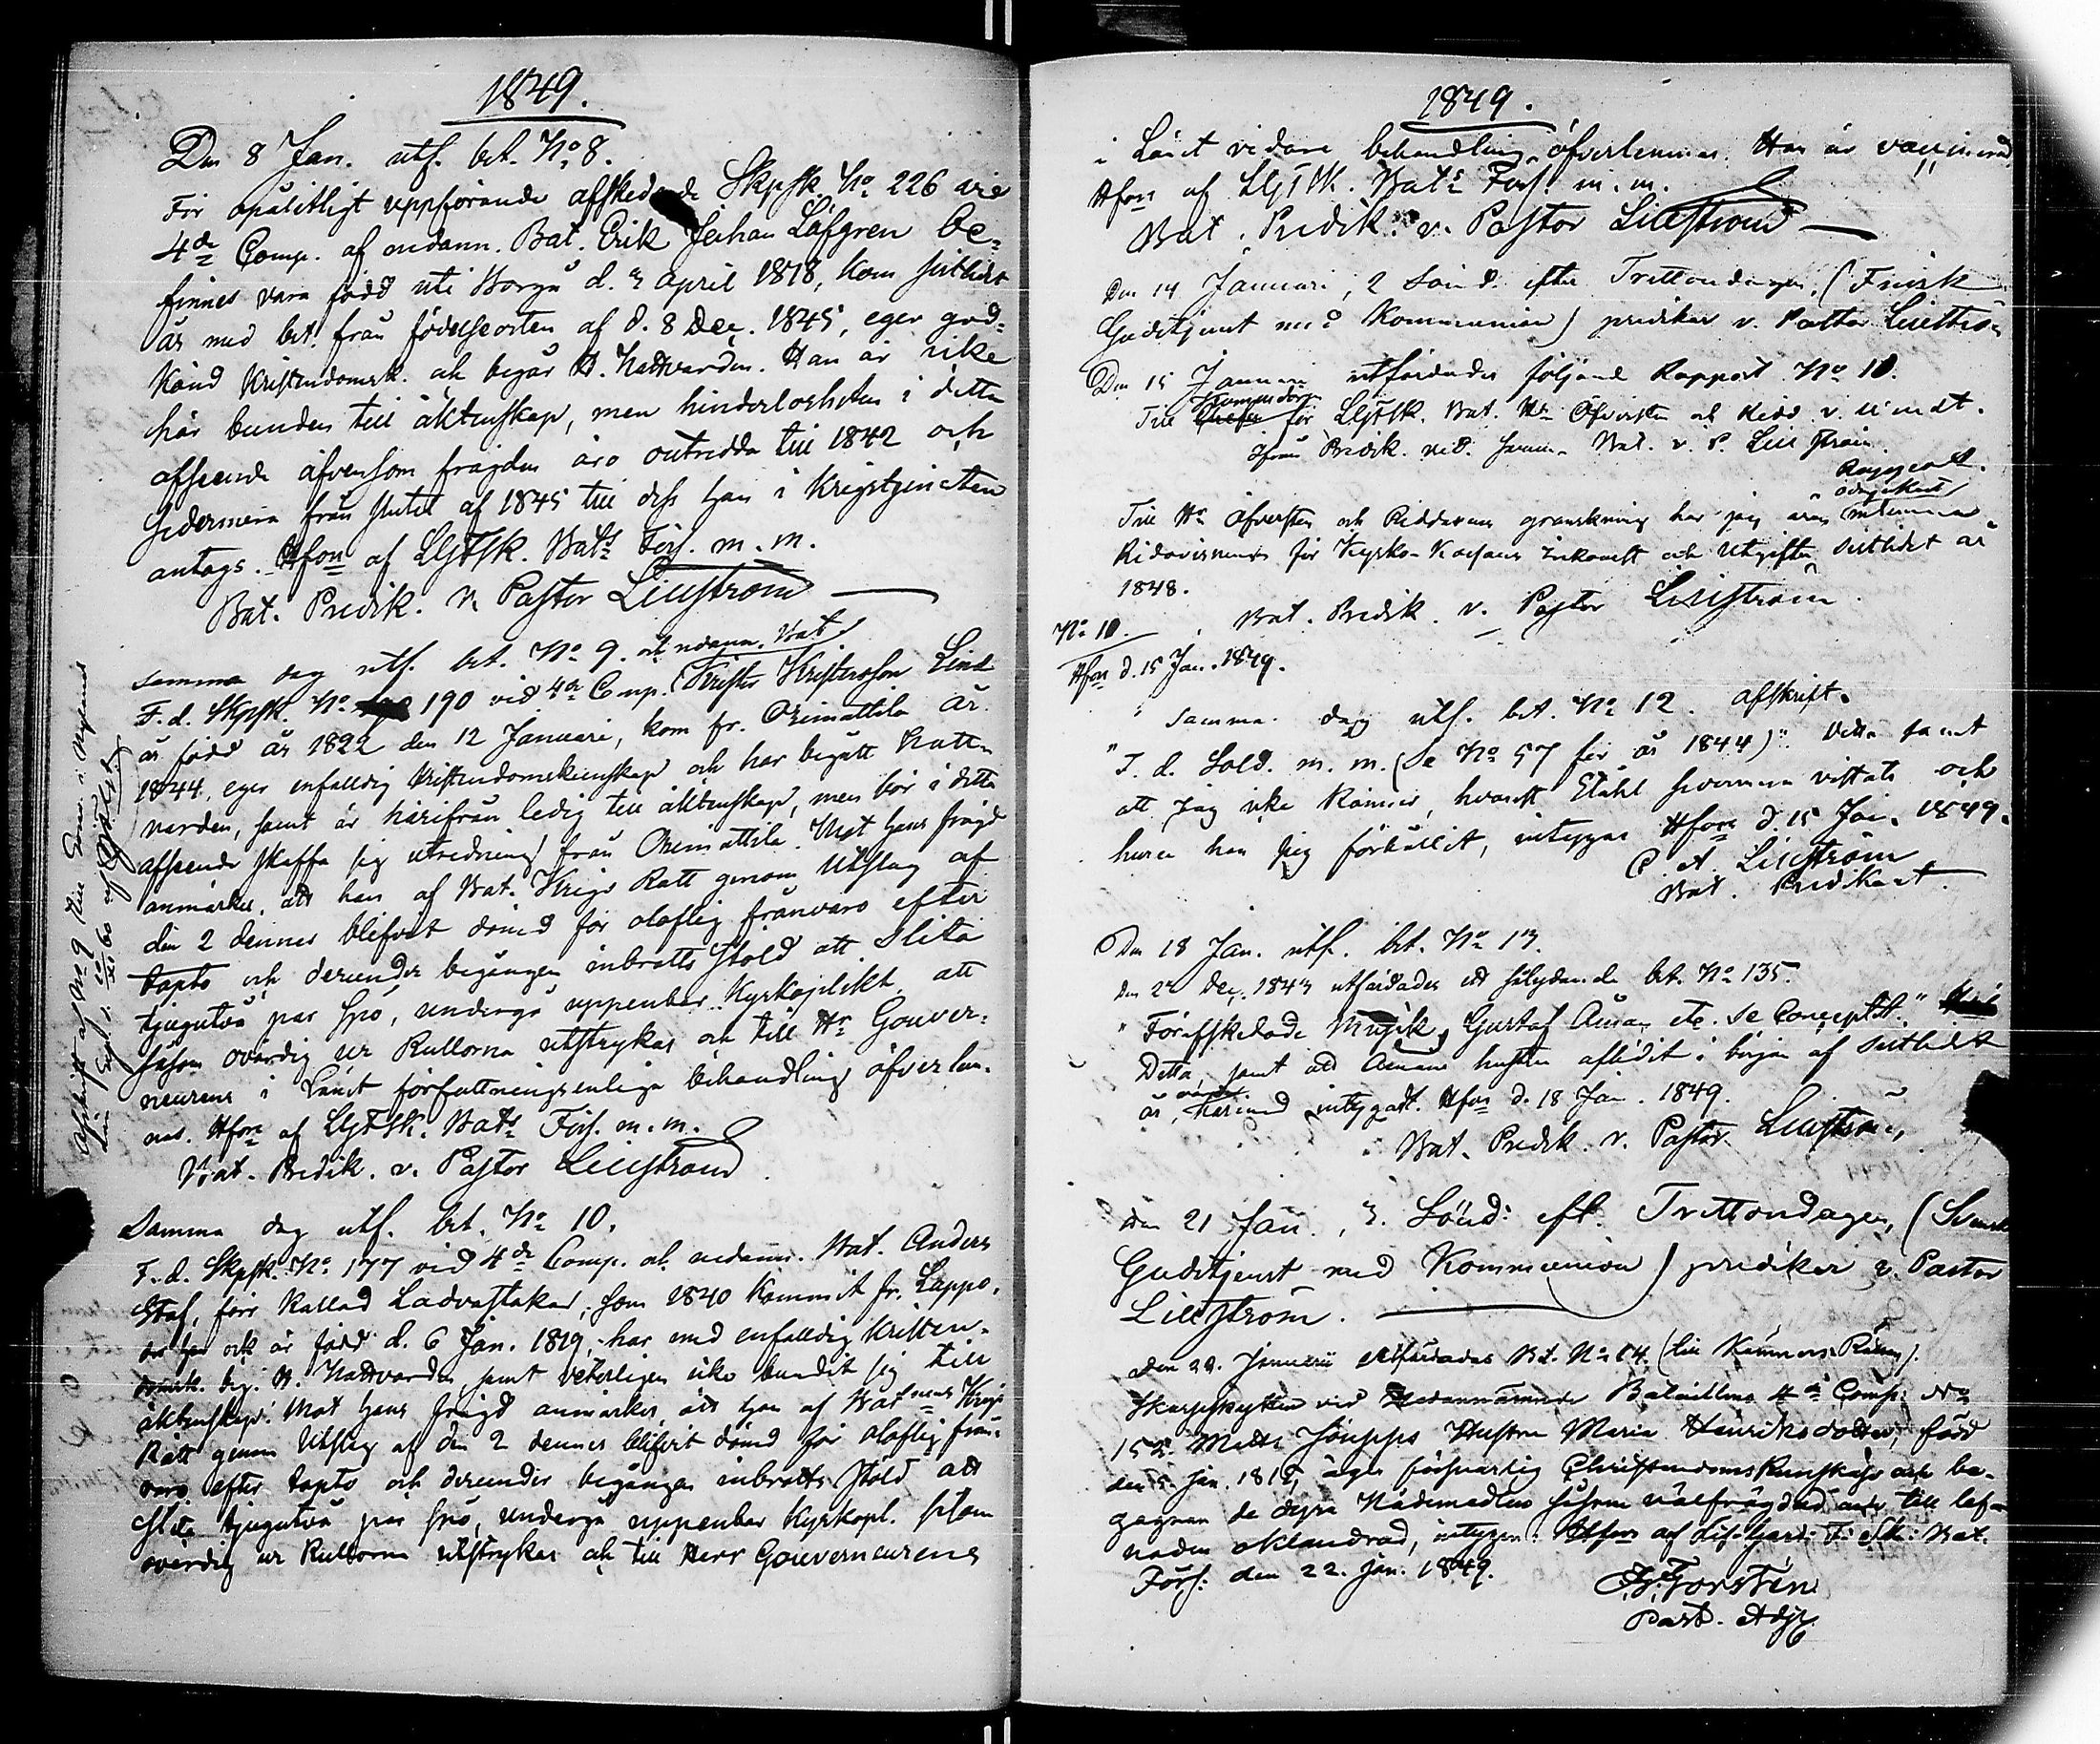 1849.
Den 8 Jan. utf. bet. No 8.
För opålitligt uppförande afskedade Skpsk. No 226 vid
4de Comp. af nedann. Bat. Erik Johan Löfgren be-
finnes vara född uti Borgå d. 3 April 1818, kom sistlidet
år med bet. från födelseorten af d. 8 Dec. 1845, eger god-
känd Kristendomsk. och begår H. Nattvarden. Han är icke
här bunden till äktenskap, men hinderlösheten i detta
afseende äfvensom frägden äro outredda till 1842 och
sedermera från slutet af 1845 till dess han i Krigstjensten
antogs. Hfors af LGFSk. Bats Förs. m. m.
Bat. Predik. v. Pastor Lillström
Samma dag utf. bet. No 9. af nedann. Bat.
F. d. Skpsk. No 190 vid 4de Comp. Krister Kristersson Lind
är född år 1822 den 12 Januari, kom fr. Orimattila år
1844, eger enfalldig Kristendomskunskap och har begått Natt-
varden, samt är härifrån ledig till äktenskap, men bör i detta
afseende skaffa sig utredning från Orimattila. Mot hans frägd
anmärkes, att han af Bat. Krigs Rätt genom Utslag af
den 2 dennes blifvit dömd för olaflig frånvaro efter
tapto och derunder begången inbrotts stöld att slita
tjugutvå par spö, undergå uppenbar Kyrkoplikt, att
såsom ovärdig ur Rullorna utstrykas och till Hr Gouver-
neurens i Länet författningsenliga behandling öfverlem-
nas. Hfors af LGFSk. Bats Förs. m. m.
Bat. Predik. v. Pastor Lillström
Samma dag utf. bet. No 10.
F. d. Skpsk. No 177 vid 4de Comp. af nedann. Bat. Anders
Staf, förr kallad Ladvastakar, som 1840 kommit fr. Lappo,
der han ock är född d. 6 Jan. 1819, har med enfalldig Kristen-
domsk. beg. H. Nattvarden, samt veterligen icke bundit sig till
äktenskap. Mot hans frägd anmärkes, att han af Batnens Krigs
Rätt genom Utslag af den 2 dennes blifvit dömd för olaflig från-
varo efter tapto och derunder begången inbrotts stöld att
slita tjugutvå par spö, undergå uppenbar Kyrkopl. såsom
ovärdig ur Rullorna utstrykas och till Herr Gouverneurens
Afskrift af No 9
1849.
i Länet vidare behandling öfverlemnas. Han är vaccinerad
Hfors af LGFSk. Bats Förs. m. m.
Bat. Predik. v. Pastor Lillström
Den 14 Januari, 2 Sönd. efter Trettondagen, (Finsk
Gudstjenst med Kommunion) predikar v. Pastor Lillström
Den 15 Januari utfärdades följande Rapport No 11.
Kommendören
Till Chefen för LGFSk. Bat. Hr Öfversten och Ridd. v.
ifrån Predik. vid samma Bat. v. P. Lillström
Rapport.
ödmjukast
Till Hr Öfversten och Riddarens granskning har jag äran inlemna
Redovisningen för Kyrko-Kassans Inkomst och Utgifter sistlidet år
1848.
Bat. Predik. v. Pastor Lillström.
No 10.
Hfors d. 15 Jan. 1849.
Samma dag utf. bet. No 12. afskrift.
"F. d. Sold. m. m. (Se No 57 för år 1844)". Detta samt
att jag icke känner, hvarest Stahl sedermera vistats och
huru han sig förhållit, intygar Hfors d. 15 Jan. 1849.
C. A. Lillström
Bat. Predikant.
Den 18 Jan. utf. bet. No 13.
Den 27 Dec. 1843 utfärdades ett sålydande bet. No 135.
"Förafskedade Musik, Gustaf Åman etc. se Conceptet."
Detta, samt att Åmans hustru aflidit i början af sistlidet
år, varder härmed intygadt. Hfors d. 18 Jan. 1849.
Bat. Predik. v. Pastor Lillström,
Den 21 Jan., 3. Sönd. eft. Trettondagen, (Svensk
Gudstjenst med Kommunion) predikar v. Pastor
Lillström.
Den 22. Januarii utfärdades Bet. No 14. (till Kämners Rätten).
Skarpskytten vid nedannämnde Bataillons 4de Comp. No
155. Matts Jouppis Hustru Maria Henriksdotter, född
den 5. Jan. 1815, äger försvarlig Christendoms Kunskap och be-
gagnar de dyra Nådemedlen såsom välfrägdad och till lef-
naden oklandrad, intygar: Hfors af Lif. Gard. F. Sk. Bat.
Förs. den 22. Jan. 1849.
Forstén
Past. Adj.